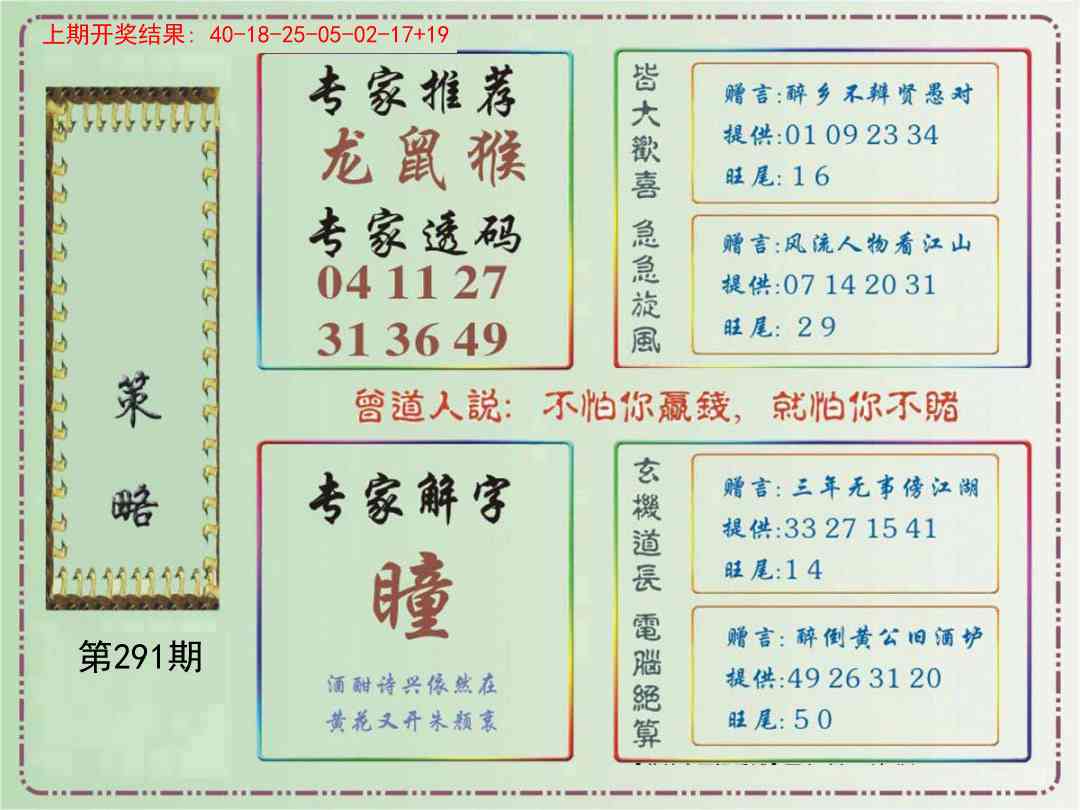 上期开奖结果: 40-18-25-05-02-17+19
策略
第291期
专家推荐
龙鼠猴
专家透码
04 11 27
31 36 49
皆大歡喜
赠言:醉乡不辨贤愚对
提供:01 09 23 34
旺尾: 1 6
急急旋風
赠言:风流人物看江山
提供:07 14 20 31
旺尾: 2 9
曾道人説: 不怕你贏錢, 就怕你不賭
专家解字
瞳
酒酣诗兴依然在
黄花又开朱颜衰
玄機道長
赠言: 三年无事傍江湖
提供:33 27 15 41
旺尾:1 4
電腦絕算
赠言: 醉倒黄公旧酒垆
提供:49 26 31 20
旺尾:5 0